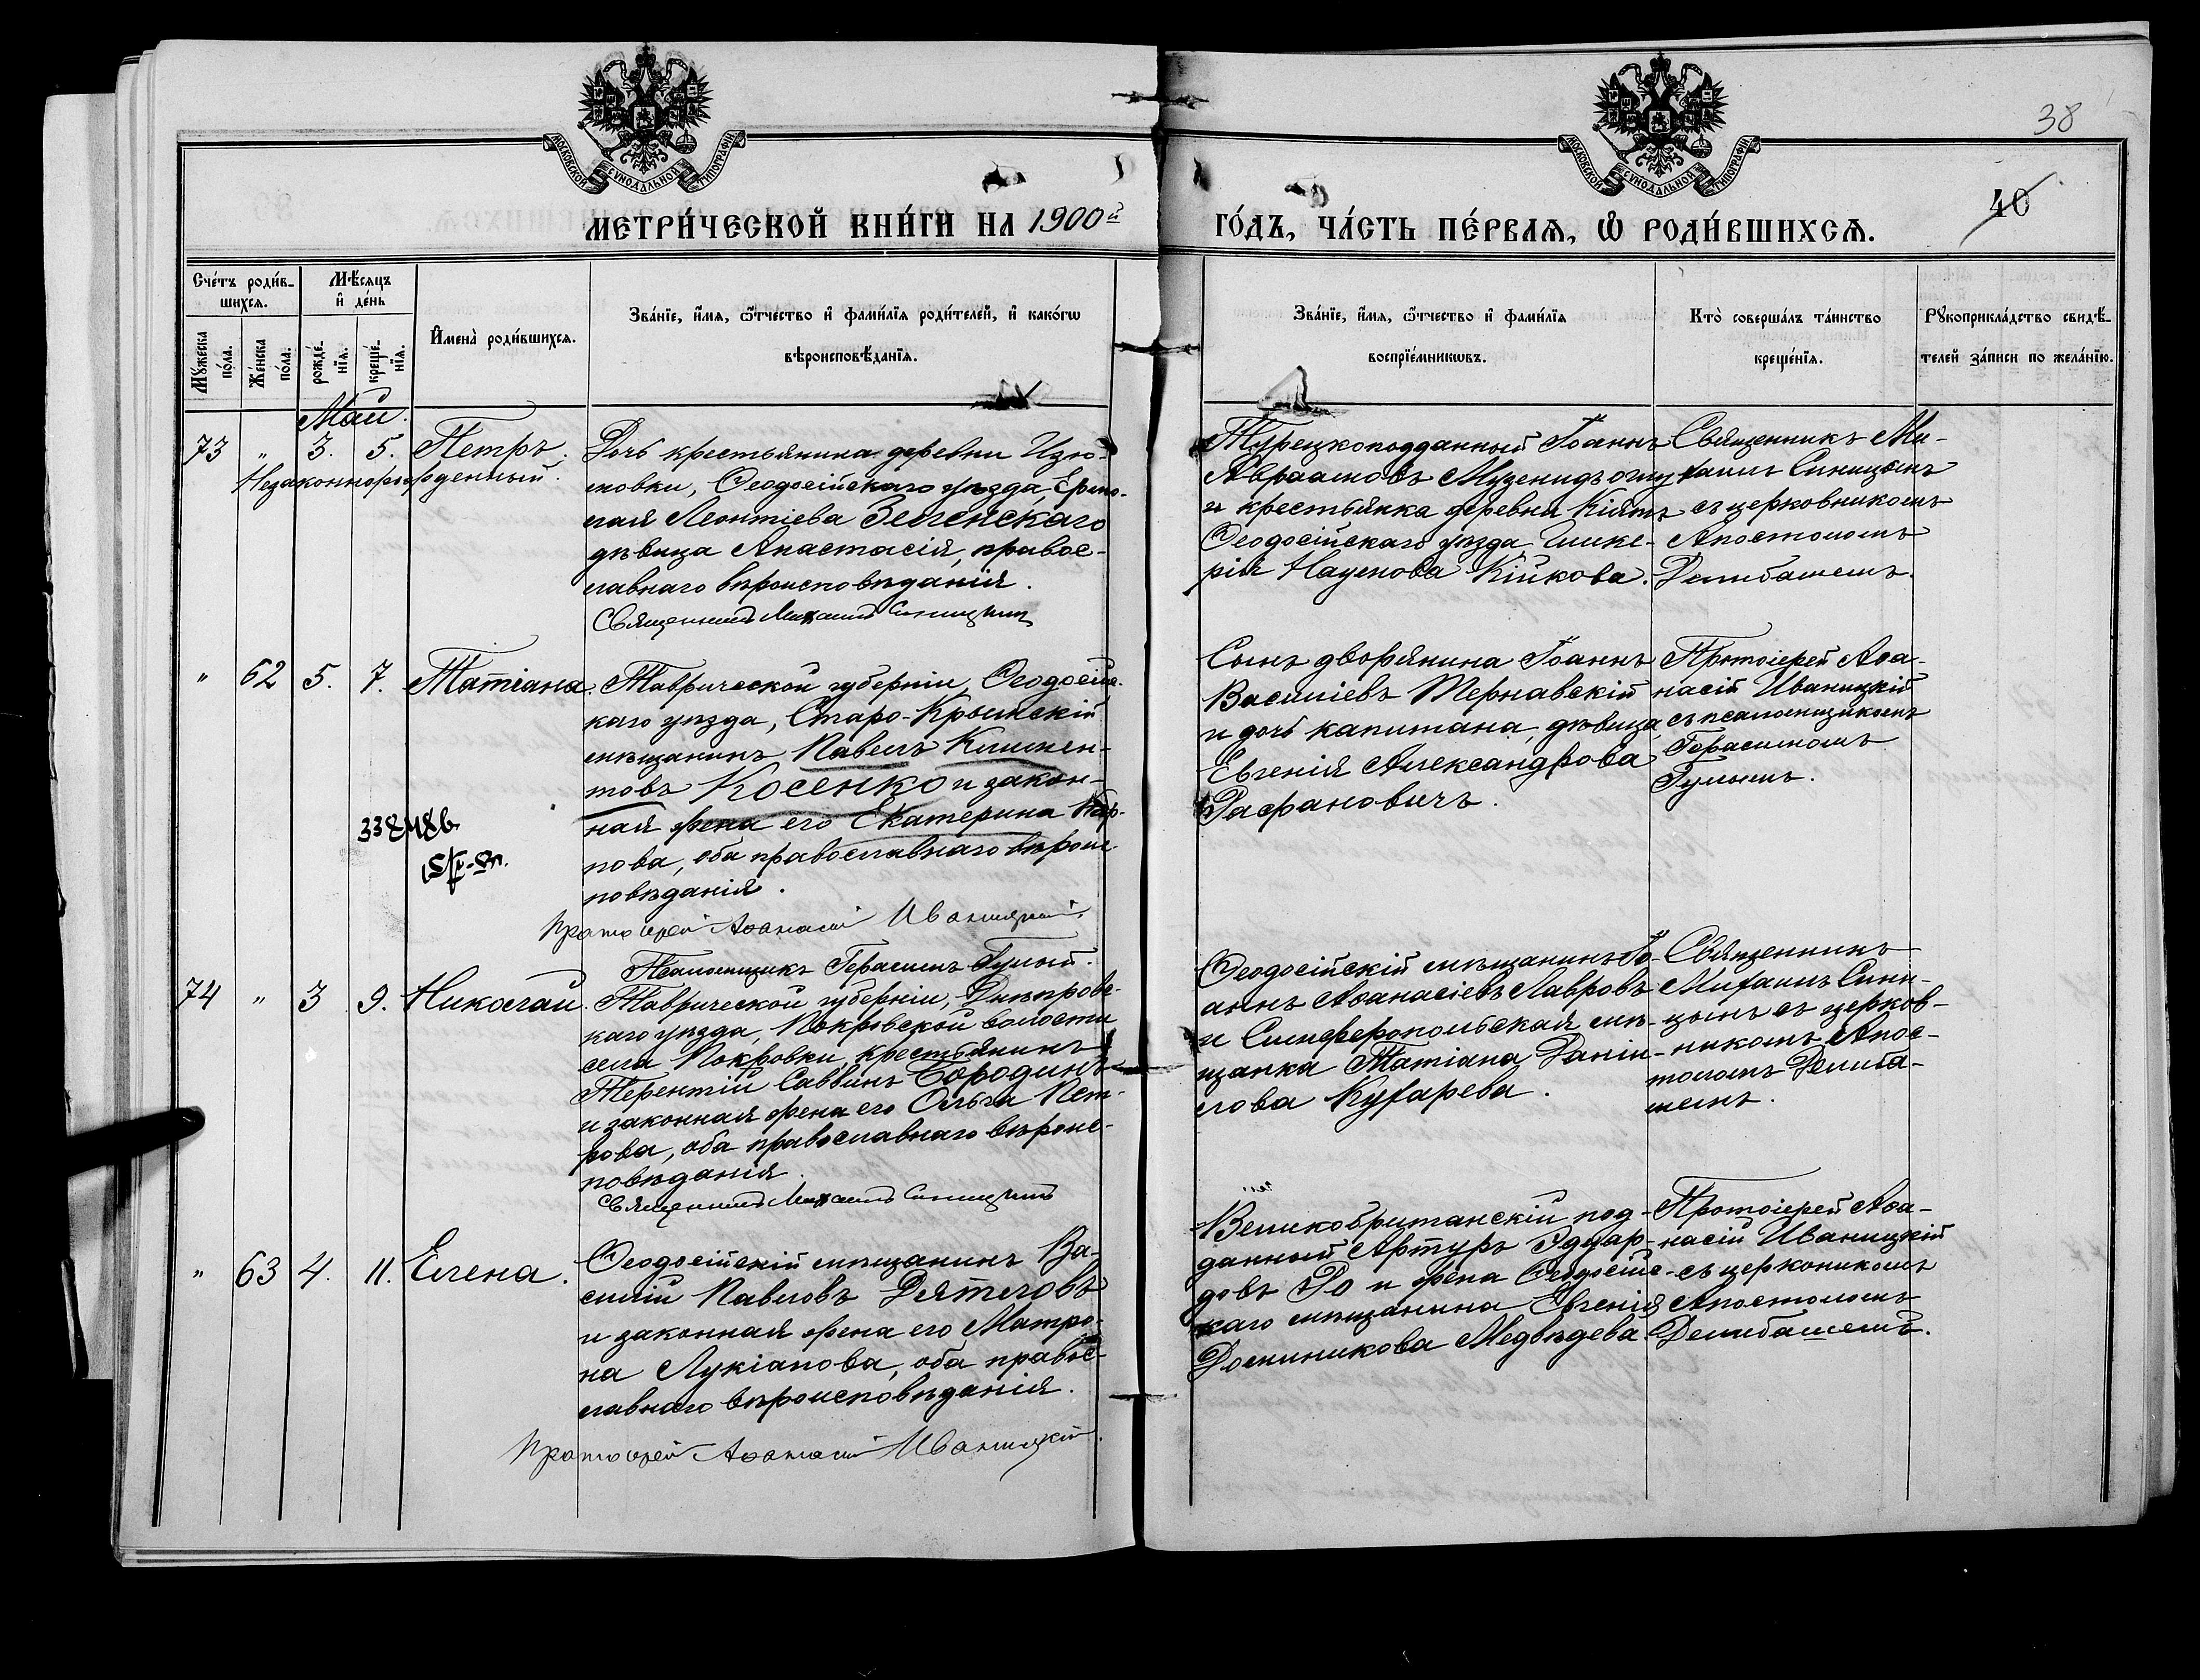 38
40
МОСКОВСКОЙ СУНОДАЛЬНОЙ ТИПОГРАФІИ
МОСКОВСКОЙ СУНОДАЛЬНОЙ ТИПОГРАФІИ
МЕТРИ́ЧЕСКОЙ КНИ́ГИ НА 1900й
ГО́ДЪ, ЧА́СТЬ ПЕ́РВАѦ, Ѽ РОДИ́ВШИХСѦ.
Сче́тъ роди́в-
шихсѧ.
Мѣ́сѧцъ
и҆ де́нь
Мꙋ́жеска по́ла.
Же́нска по́ла.
рожде́-
нїѧ.
креще́-
нїѧ.
И҆мена̀ роди́вшихсѧ.
Зва́нїе, и҆́мѧ, ѻ҆́тчество и҆ фами́лїѧ роди́телей, и҆ како́гѡ
вѣроисповѣ́данїѧ.
Зва́нїе, и҆́мѧ, ѻ҆́тчество и҆ фами́лїѧ
воспрїе́мникѡвъ.
Кто̀ соверша́лъ та́инство
креще́нїѧ.
Рꙋкоприкла́дство свидѣ́-
телей за́писи по жела́нїю.
Май.
73 " 3. 5. Петръ.
Незаконнорожденный.
Дочь крестьянина деревни Изю-
мовки, Ѳеодосійскаго уѣзда, Ермо-
лая Леонтіева Зеленскаго
дѣвица Анастасія, правос-
лавнаго вѣроисповѣданія.
Священникъ Михаилъ Синицынъ
Турецкоподданный Іоаннъ
Авраамовъ Музенидъ
и крестьянка деревни Кіятъ
Ѳеодосійскаго уѣзда,
рія Наумова Кійкова.
Священникъ Ми-
хаилъ Синицынъ
съ церковникомъ
Апостоломъ
Демибашемъ.
" 62 5. 7. Татіана.
Таврической губерніи, Ѳеодосійс-
каго уѣзда, Старо-Крымскій
мѣщанинъ Павелъ Климен-
товъ Косенко и закон-
ная жена его Екатерина Кар-
пова, оба православнаго вѣроис-
повѣданія.
Протоіерей Аѳанасій Иваницкій.
Псаломщикъ Герасимъ Гулый.
Сынъ дворянина Іоаннъ
Василіевъ Тернавскій
и дочь капитана, дѣвица
Евгенія Александрова
Рафановичъ.
Протоіерей Аѳа-
насій Иваницкій
съ псаломщикомъ
Герасимомъ
Гулымъ.
74 " 3 9. Николай.
Таврической губерніи, Днѣпровс-
каго уѣзда, Покровской волости
села Покровки, крестьянинъ
Терентій Саввинъ Бородинъ
и законная жена его Ольга Пет-
рова, оба православнаго вѣроис-
повѣданія.
Священникъ Михаилъ Синицынъ
Ѳеодосійскій мѣщанинъ Іо-
аннъ Аѳанасіевъ Лавровъ
и Симферопольская мѣ-
щанка Татіана Даніи-
лова Кухарева.
Священникъ
Михаилъ Сини-
цынъ съ церков-
никомъ Апос-
толомъ Демиба-
шемъ.
" 63 4. 11. Елена.
Ѳеодосійскій мѣщанинъ Ва-
силій Павловъ Дятловъ
и законная жена его Матро-
на Лукіанова, оба правос-
лавнаго вѣроисповѣданія.
Протоіерей Аѳанасій Иваницкій.
Великобританскій под-
данный Артуръ Эдуар-
довъ Ро и жена Ѳеодосійс-
каго мѣщанина Евгенія
Доминикова Медвѣдева.
Протоіерей Аѳа-
насій Иваницкій
съ церконикомъ
Апостоломъ
Демибашемъ.